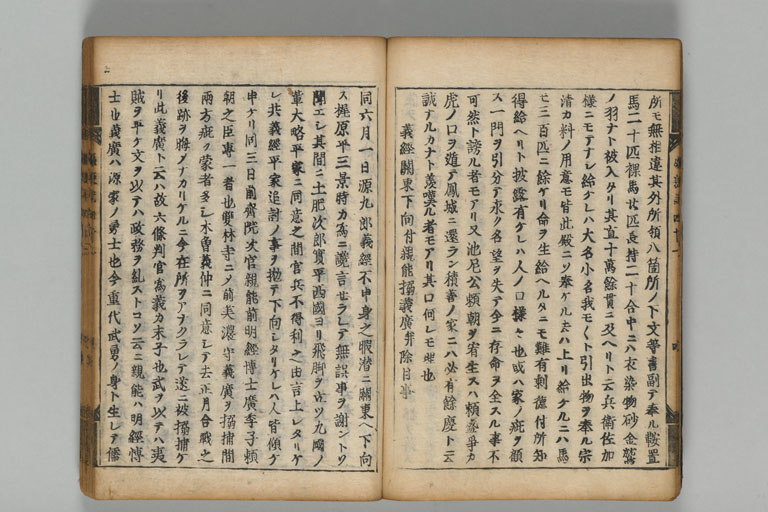 所モ無相違其外所領八箇所ノ下文等書副テ奉ル鞍置
馬二十匹裸馬廿匹長持二十合中ニハ衣染物砂金鷲
ノ羽ナト被入タリ其直十萬餘貫ニ及ヘリト云兵衛佐加
様ニモテナシ給ケレハ大名小名我モ〱ト引出物ヲ奉ル宗
清カ料ノ用意モ皆此殿ニソ奉ケル去ハ上リ給ケルニハ馬
モ三百匹ニ餘ケリ命ヲ生給ヘルタニモ難有剰徳付所知
得給ヘリト披露有ケレハ人ノ口様々也或ハ家ノ疵ヲ顧
ス一門ヲ引分テ永ク名望ヲ失テ今ニ存命ヲ全スル事不
可然ト謗ル者モアリ又池尼公頼朝ヲ宥生スハ頼盛爭カ
虎ノ口ヲ遁テ鳳城ニ還ラン積善ノ家ニハ必有餘慶ト云
誠ナルカナト羨嘆ル者モアリ其口何レモ理也
義經關東下向付親能搦義廣弁除目事
同六月一日源九郎義經不申身之暇潜ニ關東ヘ下向
ス梶原平三景時カ為ニ讒言セラレテ無誤事ヲ謝ントソ
聞エシ其間ニ土肥次郎實平西國ヨリ飛脚ヲ立ツ九國ノ
輩大略平家ニ同意之間官兵不得利之由言上シタリケ
レ共義經平家追討ノ事ヲ抛テ下向シタリケレハ人皆傾ケ
申ケリ同三日前齋院次官親能前明經博士廣季子頼
朝之臣專一者也雙林寺ニノ前美濃守義廣ヲ搦捕間
兩方疵ヲ蒙者多シ木曽義仲ニ同意シテ去正月合戰之
後跡ヲ晦ノナカリケルニ今在所ヲアラクラレテ遂ニ被搦捕ケ
リ此義廣ト云ハ故六條判官為義カ末子也武ヲ以テハ夷
賊ヲ平ケ文ヲ以テハ政務ヲ糺ストコソ云ニ親能ハ明經博
士也義廣ハ源家ノ勇士也今重代武勇ノ身ト生レテ儒